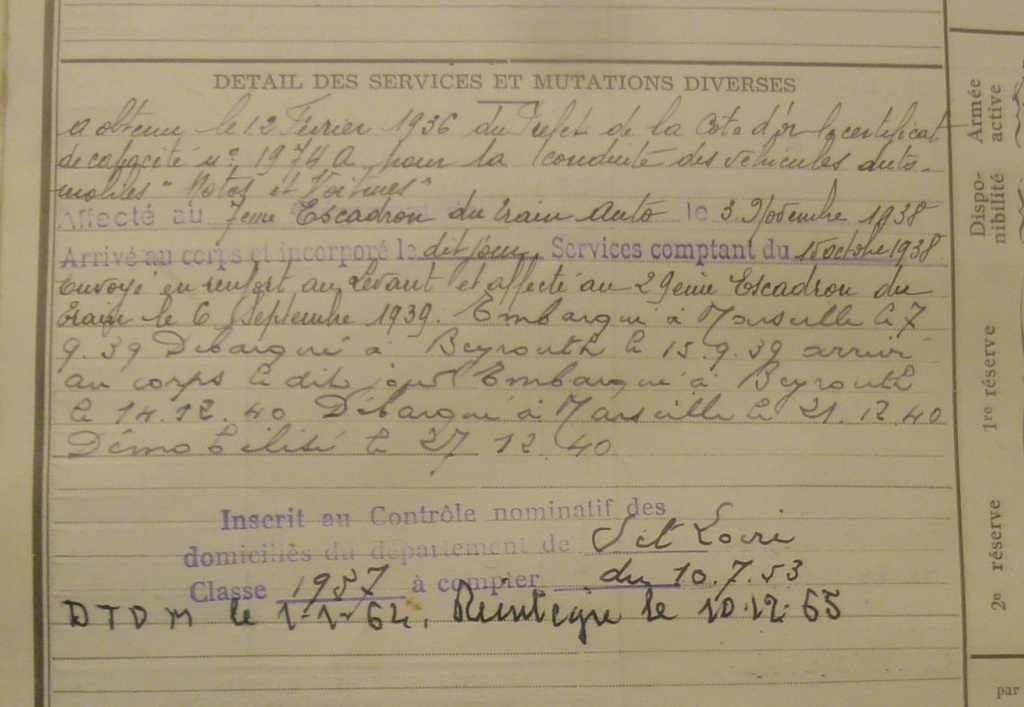 DETAIL DES SERVICES ET MUTATIONS DIVERSES
a obtenu le 12 Février 1936 du Prefet de la Cote d'or le certificat
de capacité n° 1974 A pour la conduite des véhicules auto-
mobiles "Motos et Voitures"
Affecté au 7eme Escadron du Train Auto le 3 Novembre 1938
Arrivé au corps et incorporé le dit jour. Services comptant du 15 octobre 1938.
Envoyé en renfort au Levant et affecté au 29eme Escadron du
Train le 6 Septembre 1939. Embarqué à Marseille le 7
9.39 Débarqué à Beyrouth le 15.9.39 arrivé
au corps le dit jour Embarqué à Beyrouth
le 14.12.40 Débarqué à Marseille le 21.12.40
Démobilisé le 27 12 40
Inscrit au Contrôle nominatif des
domiciliés du département de S et Loire
Classe 1957 à compter du 10.7.53
DTDM le 1-1-62. Réintégré le 10.12.65
Armée
active
Dispo-
nibilité
1re réserve
2e réserve
par